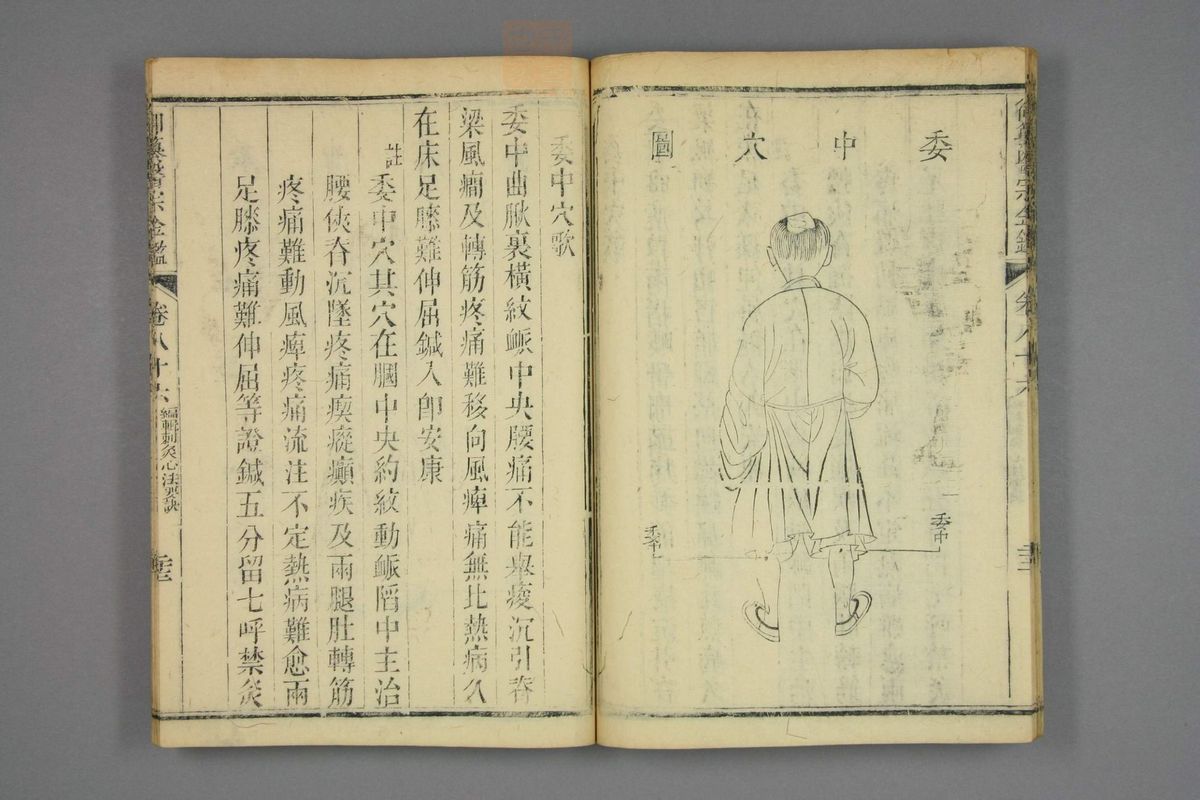 御纂醫宗金鑑
卷八十六
委中穴圖
委中
委中
委中穴歌
委中曲𦝫裏橫紋䘑中央腰痛不能舉痠沉引脊
梁風癎及轉筋疼痛難移向風痺痛無比熱病久
在床足膝難伸屈鍼入卽安康
註
委中穴其穴在膕中央約紋動䘑陷中主治
腰俠脊沉墜疼痛瘈瘲癲疾及兩腿肚轉筋
疼痛難動風痺疼痛流注不定熱病難愈兩
足膝疼痛難伸屈等證鍼五分留七呼禁灸
御纂醫宗金鑑
卷八十六
編輯刺灸心法要訣